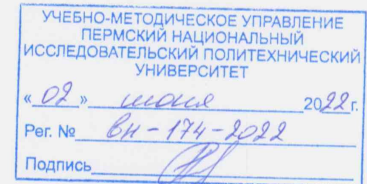 УЧЕБНО-МЕТОДИЧЕСКОЕ УПРАВЛЕНИЕ
ПЕРМСКИЙ НАЦИОНАЛЬНЫЙ
ИССЛЕДОВАТЕЛЬСКИЙ ПОЛИТЕХНИЧЕСКИЙ
УНИВЕРСИТЕТ
«02» июня 2022 г.
Рег. № вн-174-2022
Подпись